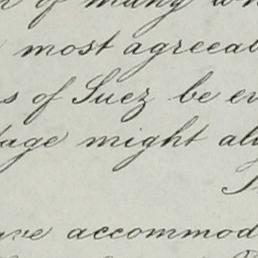 of many
most agreeab
s of Suez be ev
tage might als
ave accommod